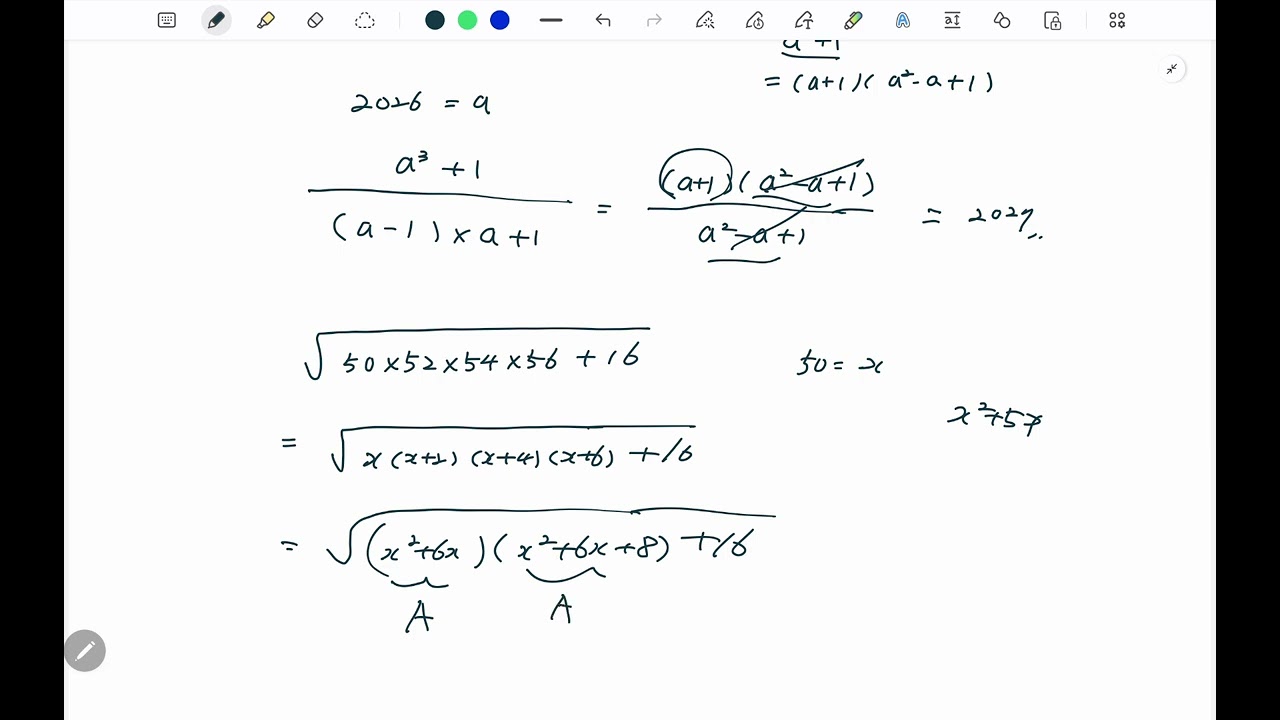 a³ + 1
= (a+1)( a² - a + 1)
2026 = a
a³ + 1
(a - 1) × a + 1
=
(a+1)(a² - a + 1)
a² - a + 1
= 2027
√50 × 52 × 54 × 56 + 16
50 = x
x² + 5x
= √x (x+2) (x+4) (x+6) + 16
= √(x² + 6x)(x² + 6x + 8) + 16
A A